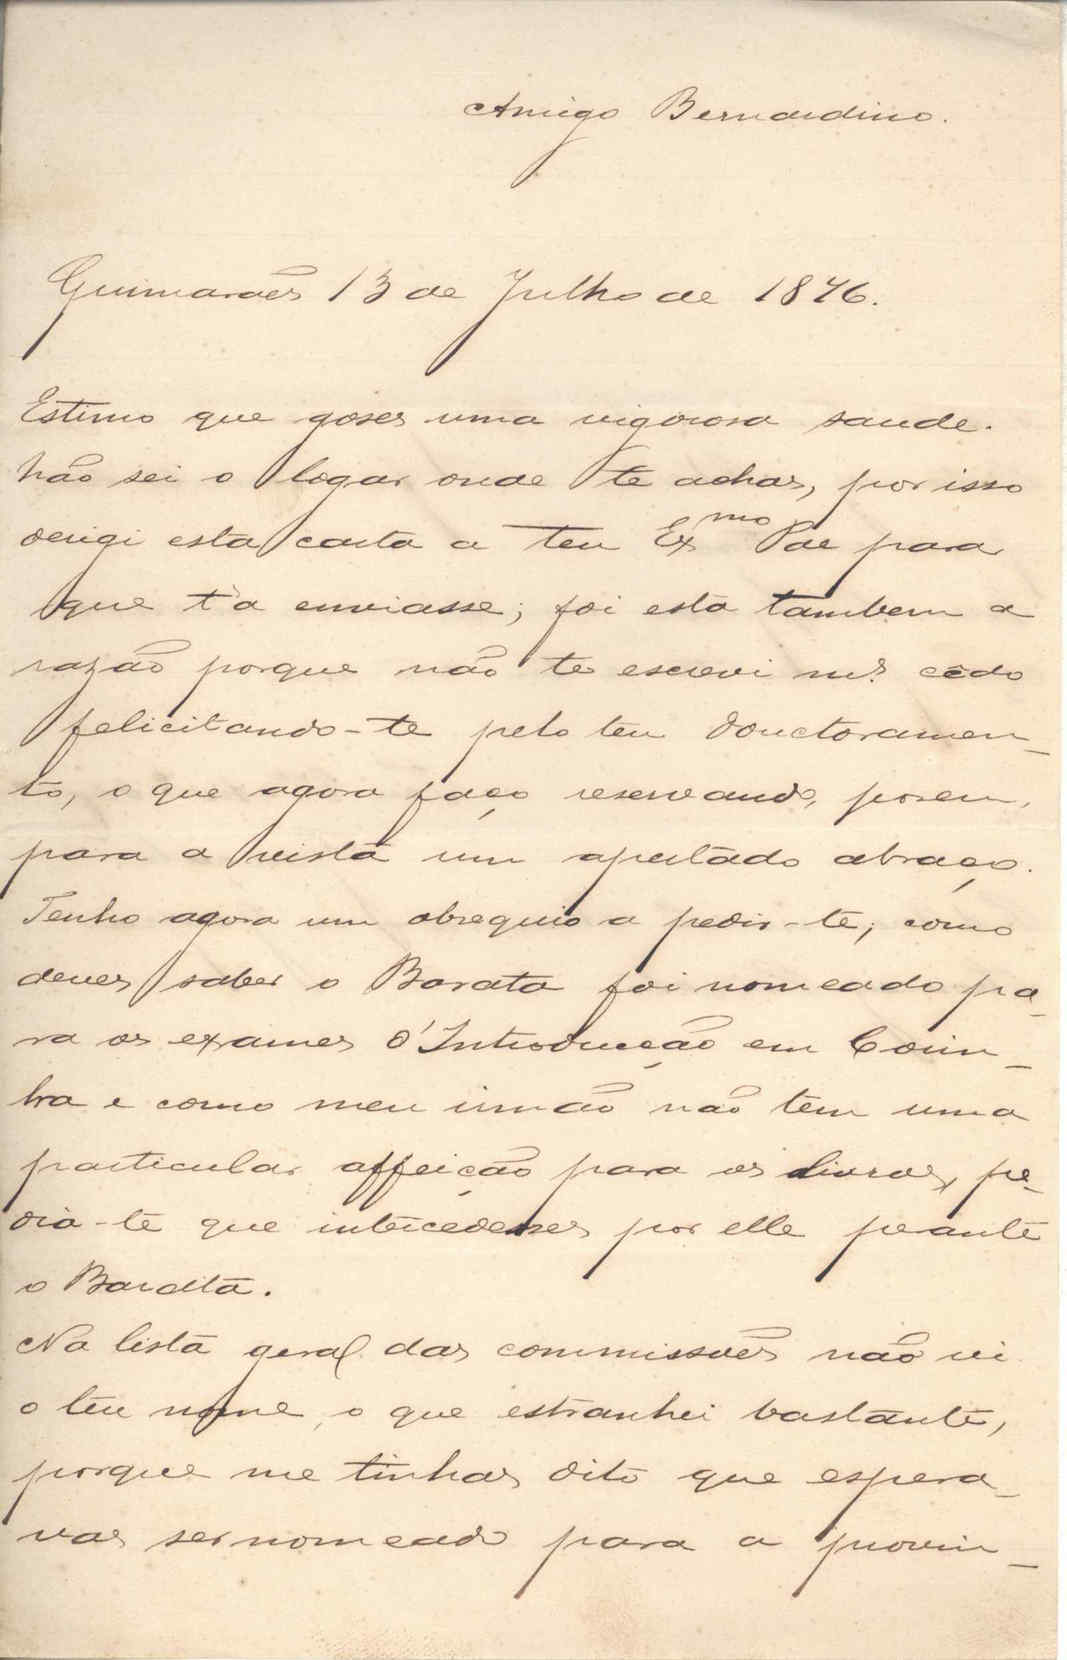 Amigo Bernardino.
Guimarães 13 de Julho de 1876.
Estimo que goses uma vigorosa saude.
Não sei o logar onde te achas, por isso
derigi esta carta a teu Ex.mo Pae para
que t'a enviasse; foi esta tambem a
razão porque não te escrevi m.s cedo
felicitando-te pelo teu douctoramen-
to, o que agora faço reservando, porem,
para a vista um apertado abraço.
Tenho agora um obsequio a pedir-te; como
deves saber o Barata foi nomeado pa-
ra os exames d'Introducção em Coim-
bra e como meu irmão não tem uma
particular affeição para os livros, pe-
dia-te que intercedesses por elle perante
o Barata.
Na lista geral das commissões não vi
o teu nome, o que estranhei bastante,
porque me tinhas dito que espera-
vas ser nomeado para a provin-